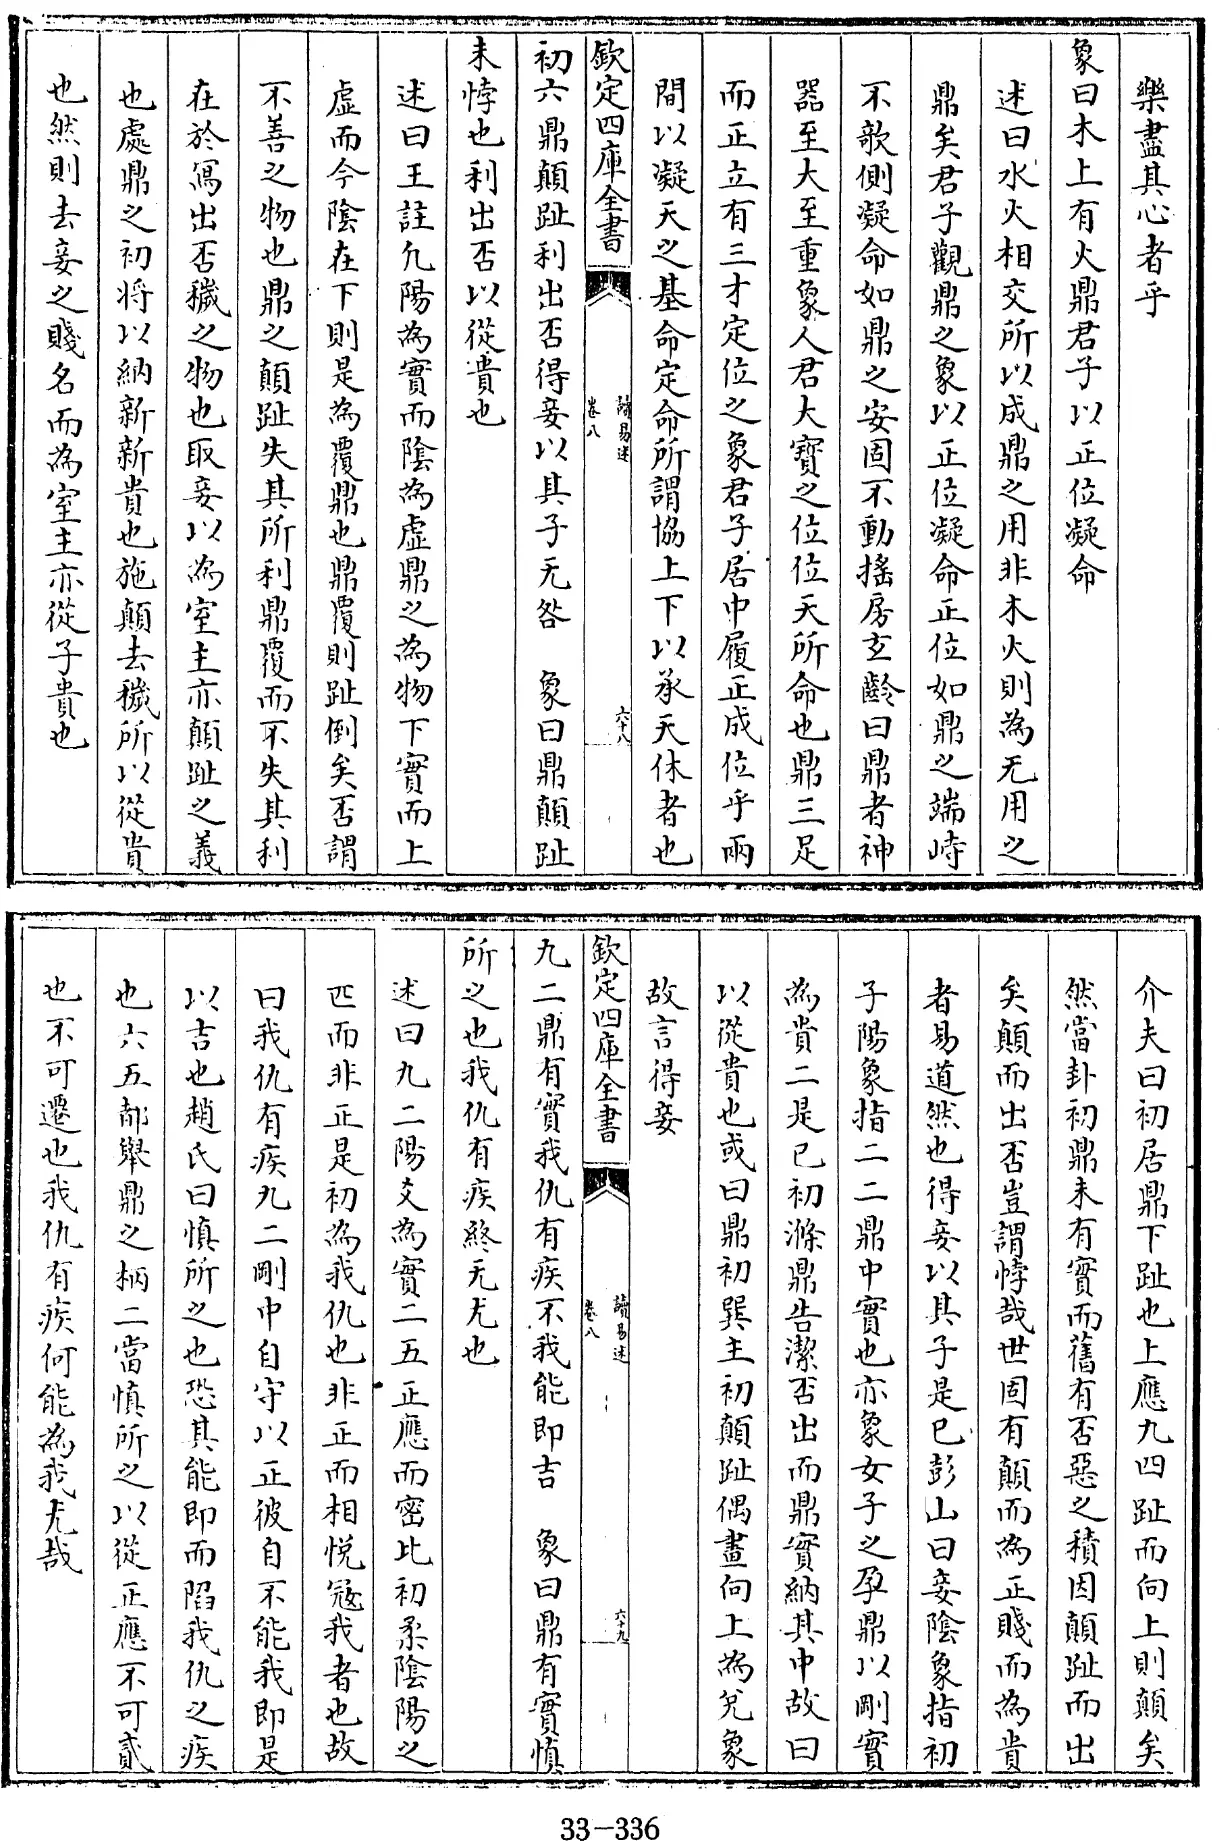 樂盡其心者乎
象曰木上有火鼎君子以正位凝命
述曰水火相交所以成鼎之用非木火則為无用之
鼎矣君子觀鼎之象以正位凝命正位如鼎之端峙
不欹側凝命如鼎之安固不動搖房玄齡曰鼎者神
器至大至重象人君大寶之位位天所命也鼎三足
而正立有三才定位之象君子居中履正成位乎兩
間以凝天之基命定命所謂協上下以承天休者也
欽定四庫全書
讀易述
卷八
六十八
初六鼎顛趾利出否得妾以其子无咎 象曰鼎顛趾
未悖也利出否以從貴也
述曰王註凢陽為實而陰為虛鼎之為物下實而上
虛而今陰在下則是為覆鼎也鼎覆則趾倒矣否謂
不善之物也鼎之顛趾失其所利鼎覆而不失其利
在於寫出否穢之物也取妾以為室主亦顛趾之義
也處鼎之初將以納新新貴也施顛去穢所以從貴
也然則去妾之賤名而為室主亦從子貴也
介夫曰初居鼎下趾也上應九四趾而向上則顛矣
然當卦初鼎未有實而舊有否惡之積因顛趾而出
矣顛而出否豈謂悖哉世固有顛而為正賤而為貴
者易道然也得妾以其子是已彭山曰妾陰象指初
子陽象指二二鼎中實也亦象女子之孕鼎以剛實
為貴二是已初滌鼎告潔否出而鼎實納其中故曰
以從貴也或曰鼎初巽主初顛趾偶畫向上為兌象
故言得妾
欽定四庫全書
讀易述
卷八
六十九
九二鼎有實我仇有疾不我能即吉 象曰鼎有實慎
所之也我仇有疾終无尤也
述曰九二陽爻為實二五正應而密比初柔陰陽之
匹而非正是初為我仇也非正而相悅寇我者也故
曰我仇有疾九二剛中自守以正彼自不能我即是
以吉也趙氏曰慎所之也恐其能即而陷我仇之疾
也六五鄗舉鼎之柄二當慎所之以從正應不可貳
也不可遷也我仇有疾何能為我尤哉
33-336